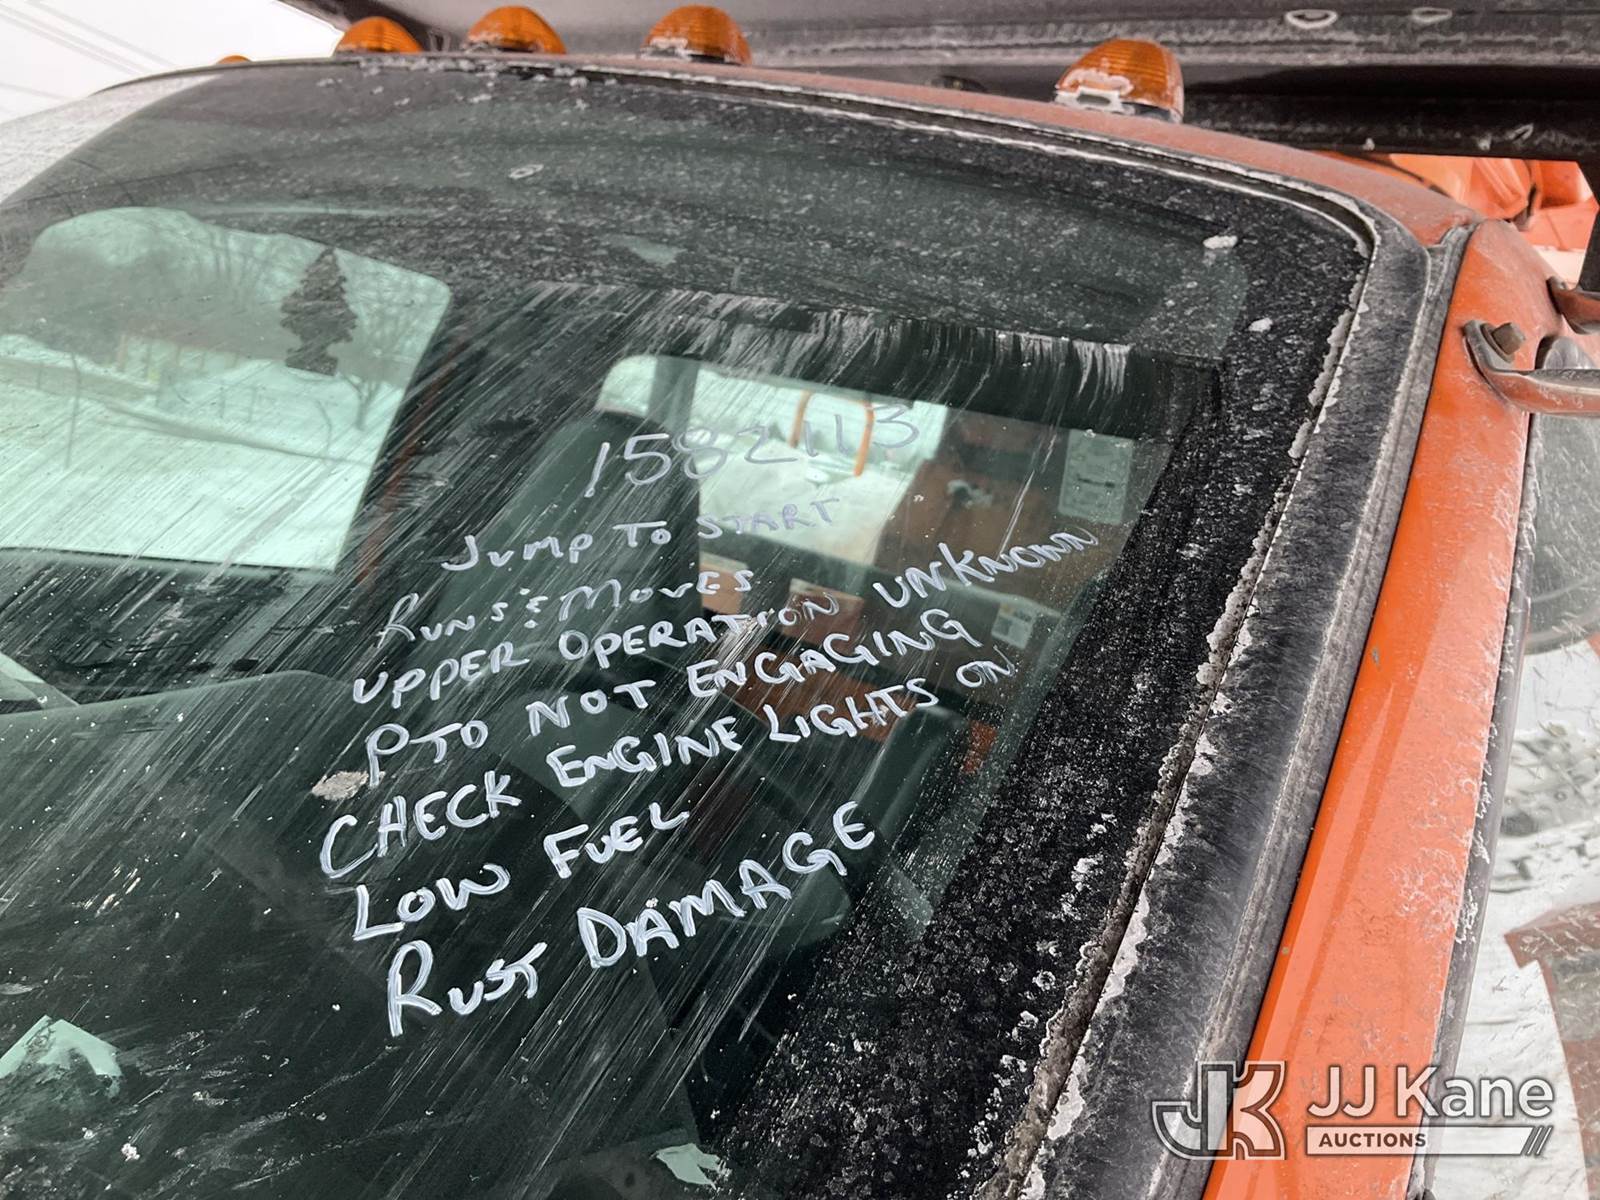 1582113
JUMP TO START
RUNS & MOVES
UPPER OPERATION UNKNOWN
PTO NOT ENGAGING
CHECK ENGINE LIGHTS ON
LOW FUEL
RUST DAMAGE
JK JJ Kane
AUCTIONS